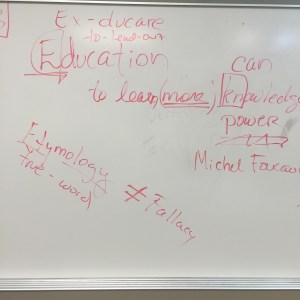 Ex-ducare
to-lead-out
Education can
to learn (more) knowledg
power
Michel Foucau
Etymology ≠ Fallacy
true-word